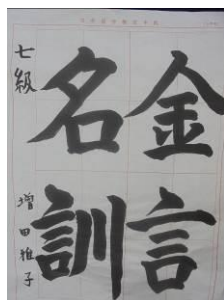 金言
名訓
七級
増田雅子